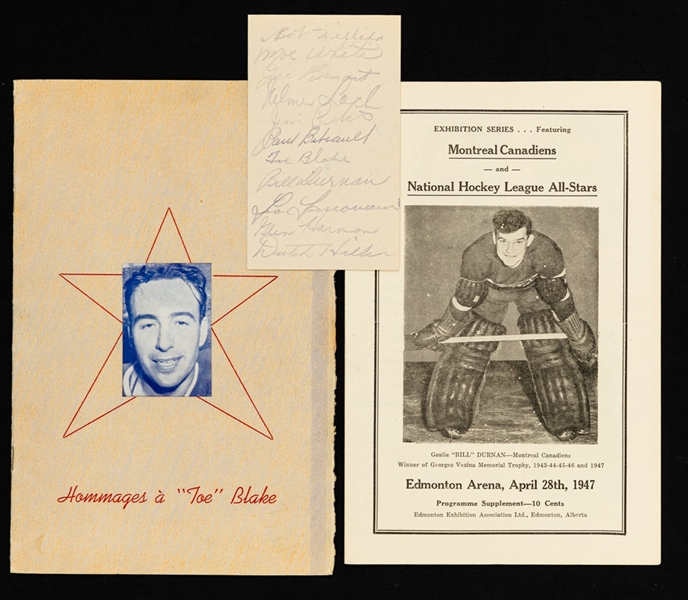 Bob Fillion
Moe White
Joe Benoit
Elmer Lach
Jim Peters
Paul Bibeault
Toe Blake
Bill Durnan
Leo Lamoureux
Glen Harmon
Dutch Hiller
Hommages à "Toe" Blake
EXHIBITION SERIES . . . Featuring
Montreal Canadiens
— and —
National Hockey League All-Stars
Goalie "BILL" DURNAN—Montreal Canadiens
Winner of Georges Vezina Memorial Trophy, 1943-44-45-46 and 1947
Edmonton Arena, April 28th, 1947
Programme Supplement—10 Cents
Edmonton Exhibition Association Ltd., Edmonton, Alberta